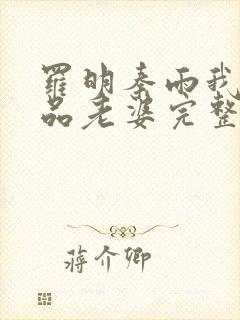 羅明秦雨我
品老婆完整
蔣介卿